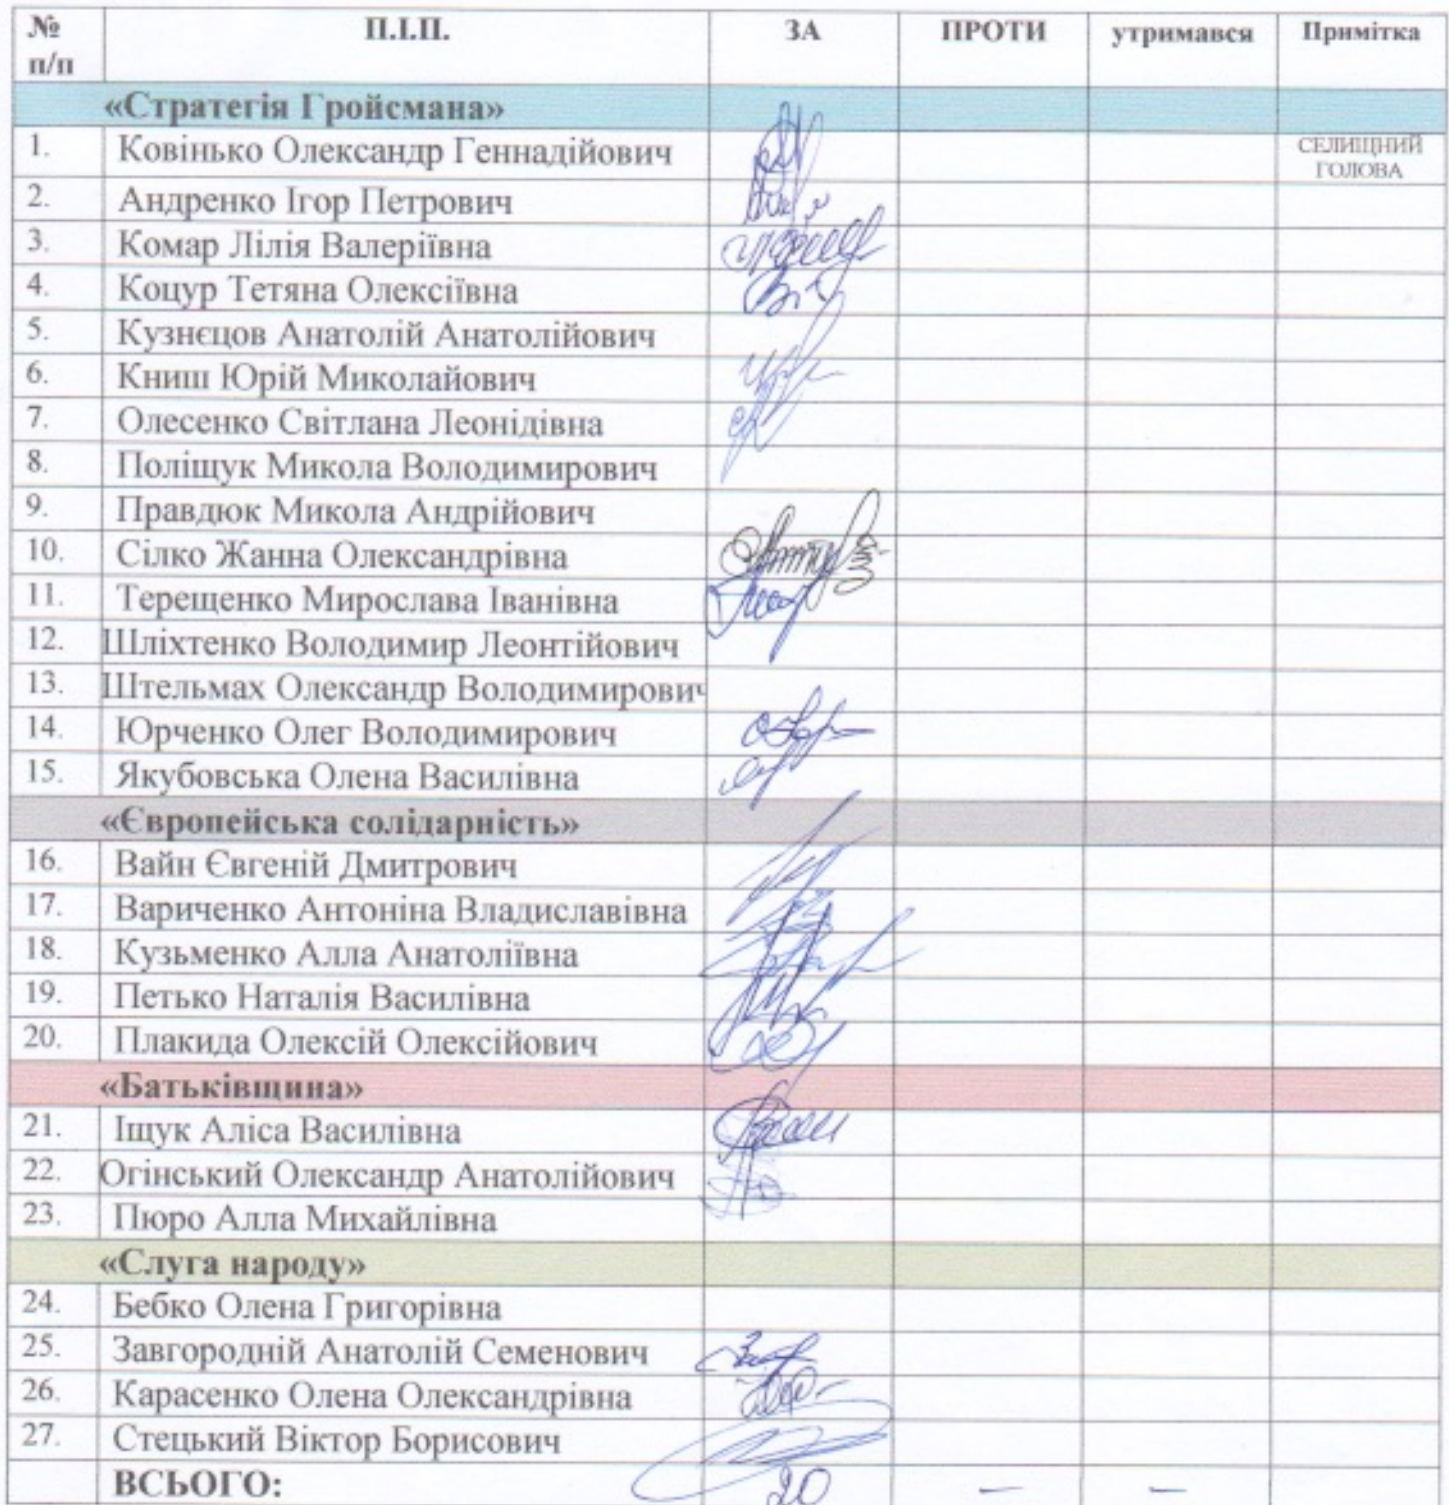 № П.І.П. ЗА ПРОТИ утримався Примітка
п/п
«Стратегія Гройсмана»
1. Ковінько Олександр Геннадійович СЕЛИЩНИЙ
ГОЛОВА
2. Андренко Ігор Петрович
3. Комар Лілія Валеріївна
4. Коцур Тетяна Олексіївна
5. Кузнєцов Анатолій Анатолійович
6. Книш Юрій Миколайович
7. Олесенко Світлана Леонідівна
8. Поліщук Микола Володимирович
9. Правдюк Микола Андрійович
10. Сілко Жанна Олександрівна
11. Терещенко Мирослава Іванівна
12. Шліхтенко Володимир Леонтійович
13. Штельмах Олександр Володимирович
14. Юрченко Олег Володимирович
15. Якубовська Олена Василівна
«Європейська солідарність»
16. Вайн Євгеній Дмитрович
17. Вариченко Антоніна Владиславівна
18. Кузьменко Алла Анатоліївна
19. Петько Наталія Василівна
20. Плакида Олексій Олексійович
«Батьківщина»
21. Іщук Аліса Василівна
22. Огінський Олександр Анатолійович
23. Пюро Алла Михайлівна
«Слуга народу»
24. Бебко Олена Григорівна
25. Завгородній Анатолій Семенович
26. Карасенко Олена Олександрівна
27. Стецький Віктор Борисович
ВСЬОГО: 20 – –